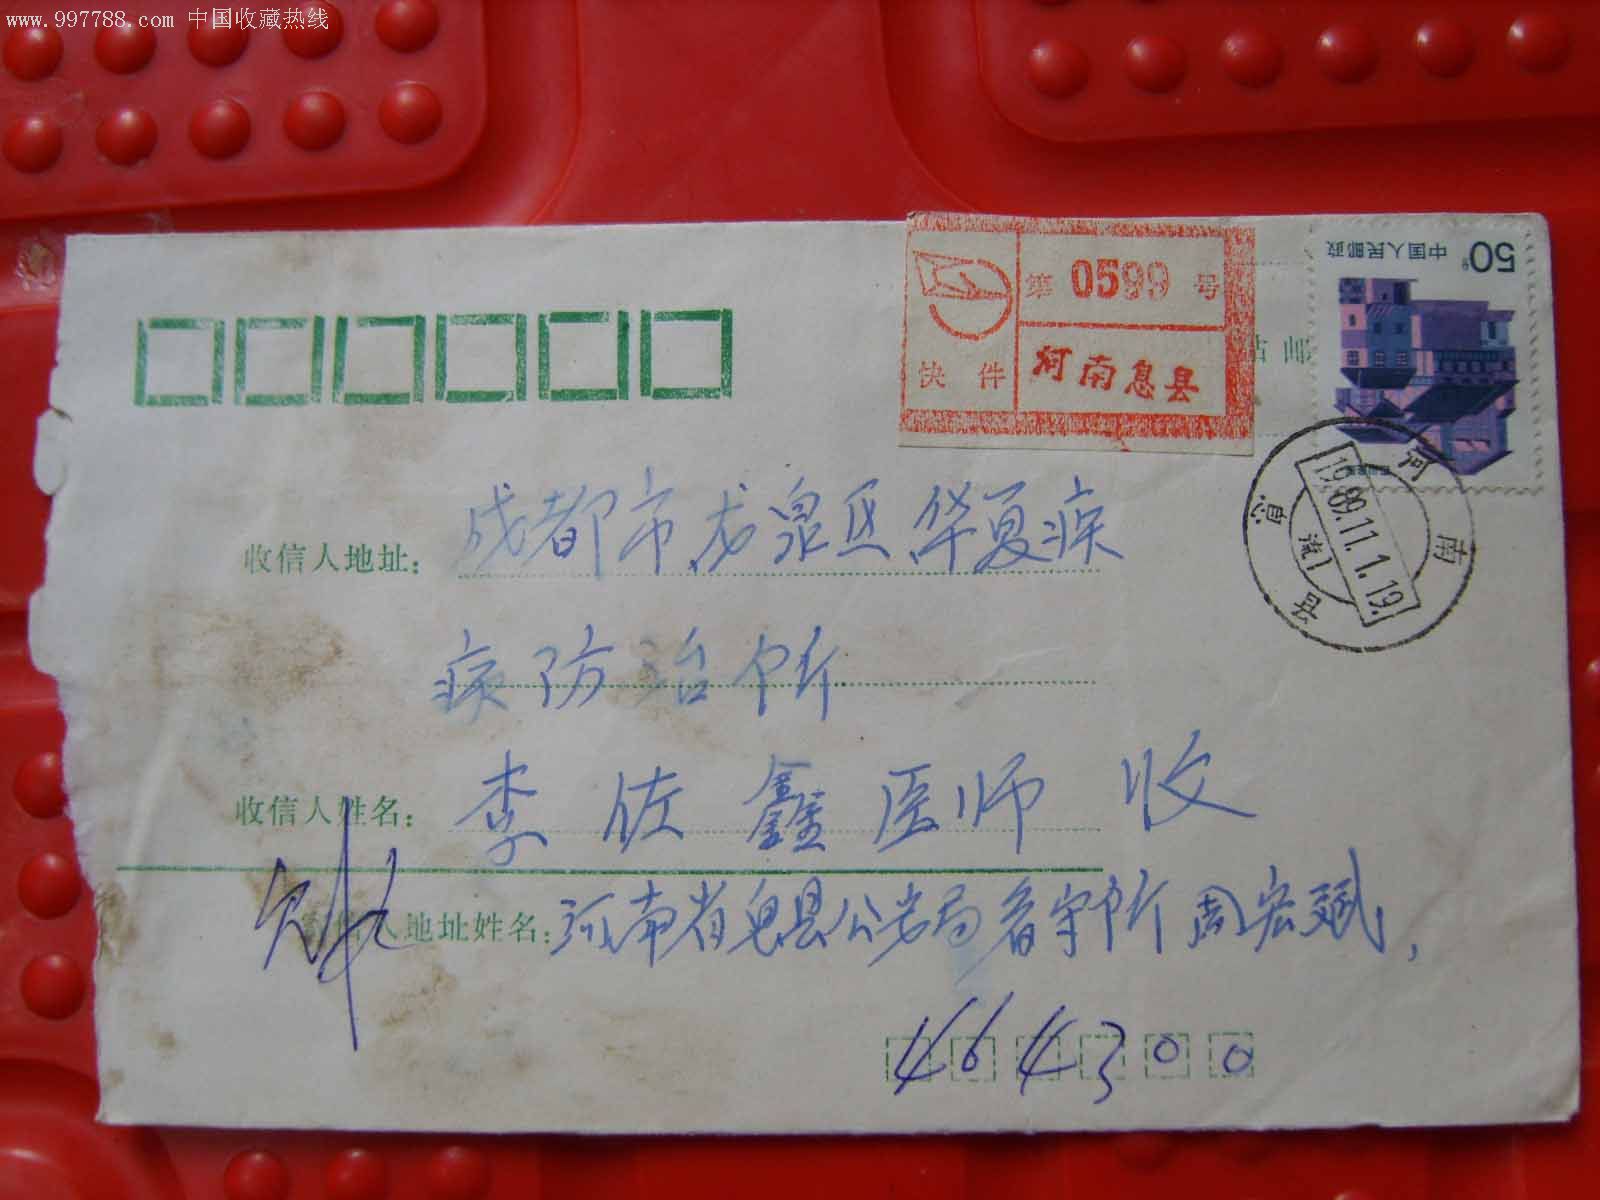 www.997788.com 中国收藏热线
中国人民邮政
50分
第 0599 号
快件
河南息县
贴邮
河南
息县
1989.11.1.19
流1
收信人地址: 成都市龙泉区华夏疾
病防治所
收信人姓名: 李佐鑫医师 收
人地址姓名: 河南省息县公安局看守所 周宏斌,
464300